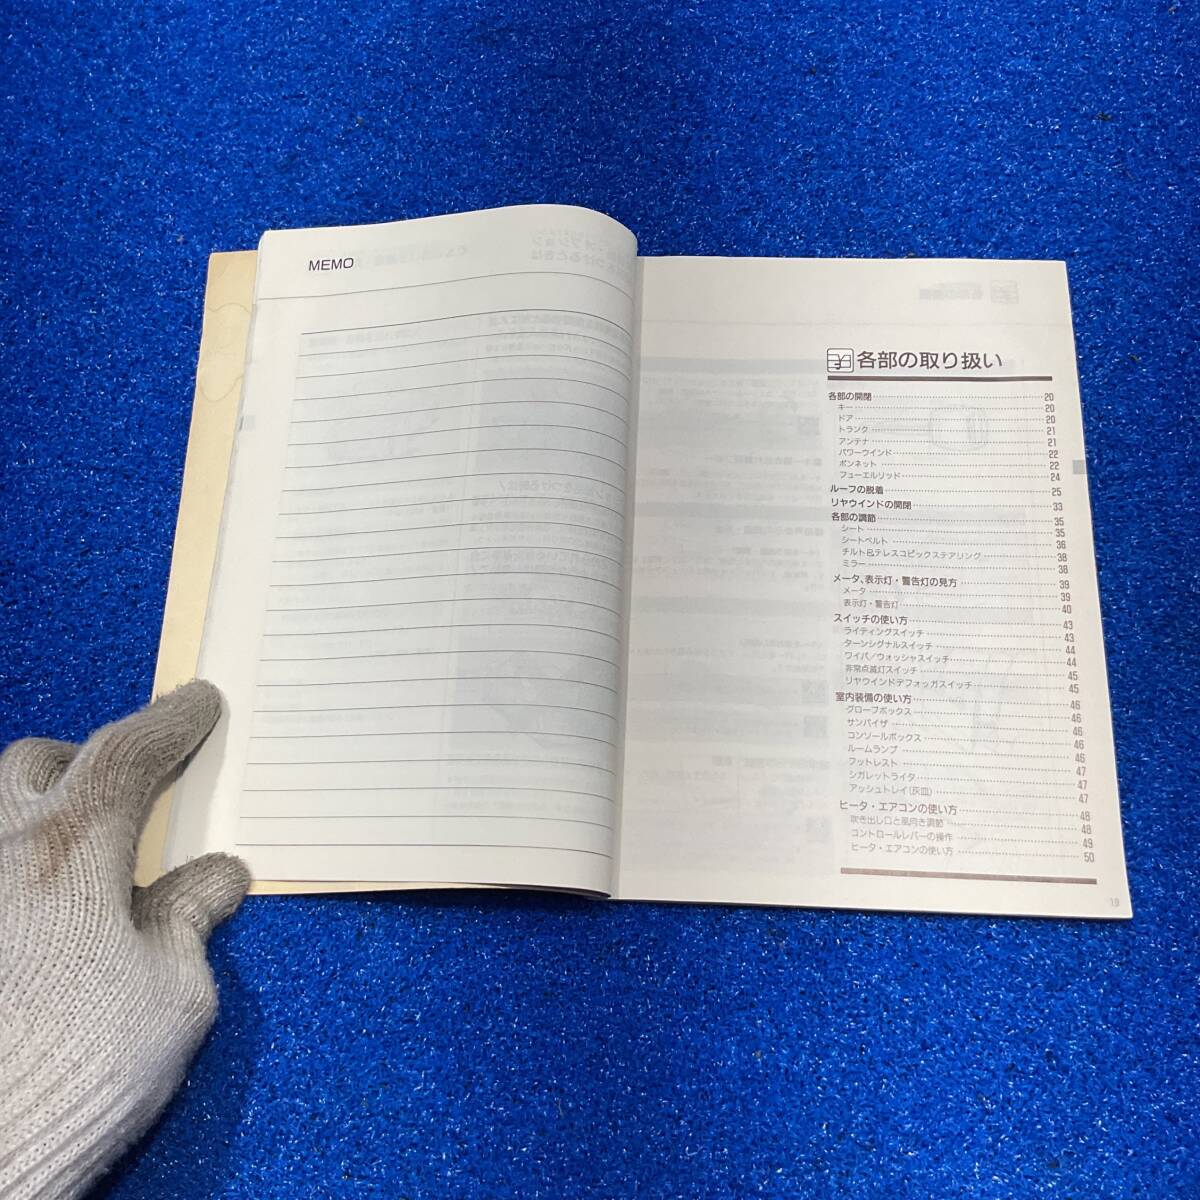 MEMO
各部の取り扱い
各部の開閉 20
キー 20
ドア 20
トランク 21
アンテナ 21
パワーウインド 22
ボンネット 22
フューエルリッド 24
ルーフの脱着 25
リヤウインドの開閉 33
各部の調節 35
シート 35
シートベルト 36
チルト&テレスコピックステアリング 38
ミラー 38
メータ、表示灯・警告灯の見方 39
メータ 39
表示灯・警告灯 40
スイッチの使い方 43
ライティングスイッチ 43
ターンシグナルスイッチ 44
ワイパ/ウォッシャスイッチ 44
非常点滅灯スイッチ 45
リヤウインドデフォッガスイッチ 45
室内装備の使い方 46
グローブボックス 46
サンバイザ 46
コンソールボックス 46
ルームランプ 46
フットレスト 47
シガレットライタ 47
アッシュトレイ(灰皿) 47
ヒータ・エアコンの使い方 48
吹き出し口と風向き調節 48
コントロールレバーの操作 49
ヒータ・エアコンの使い方 50
19